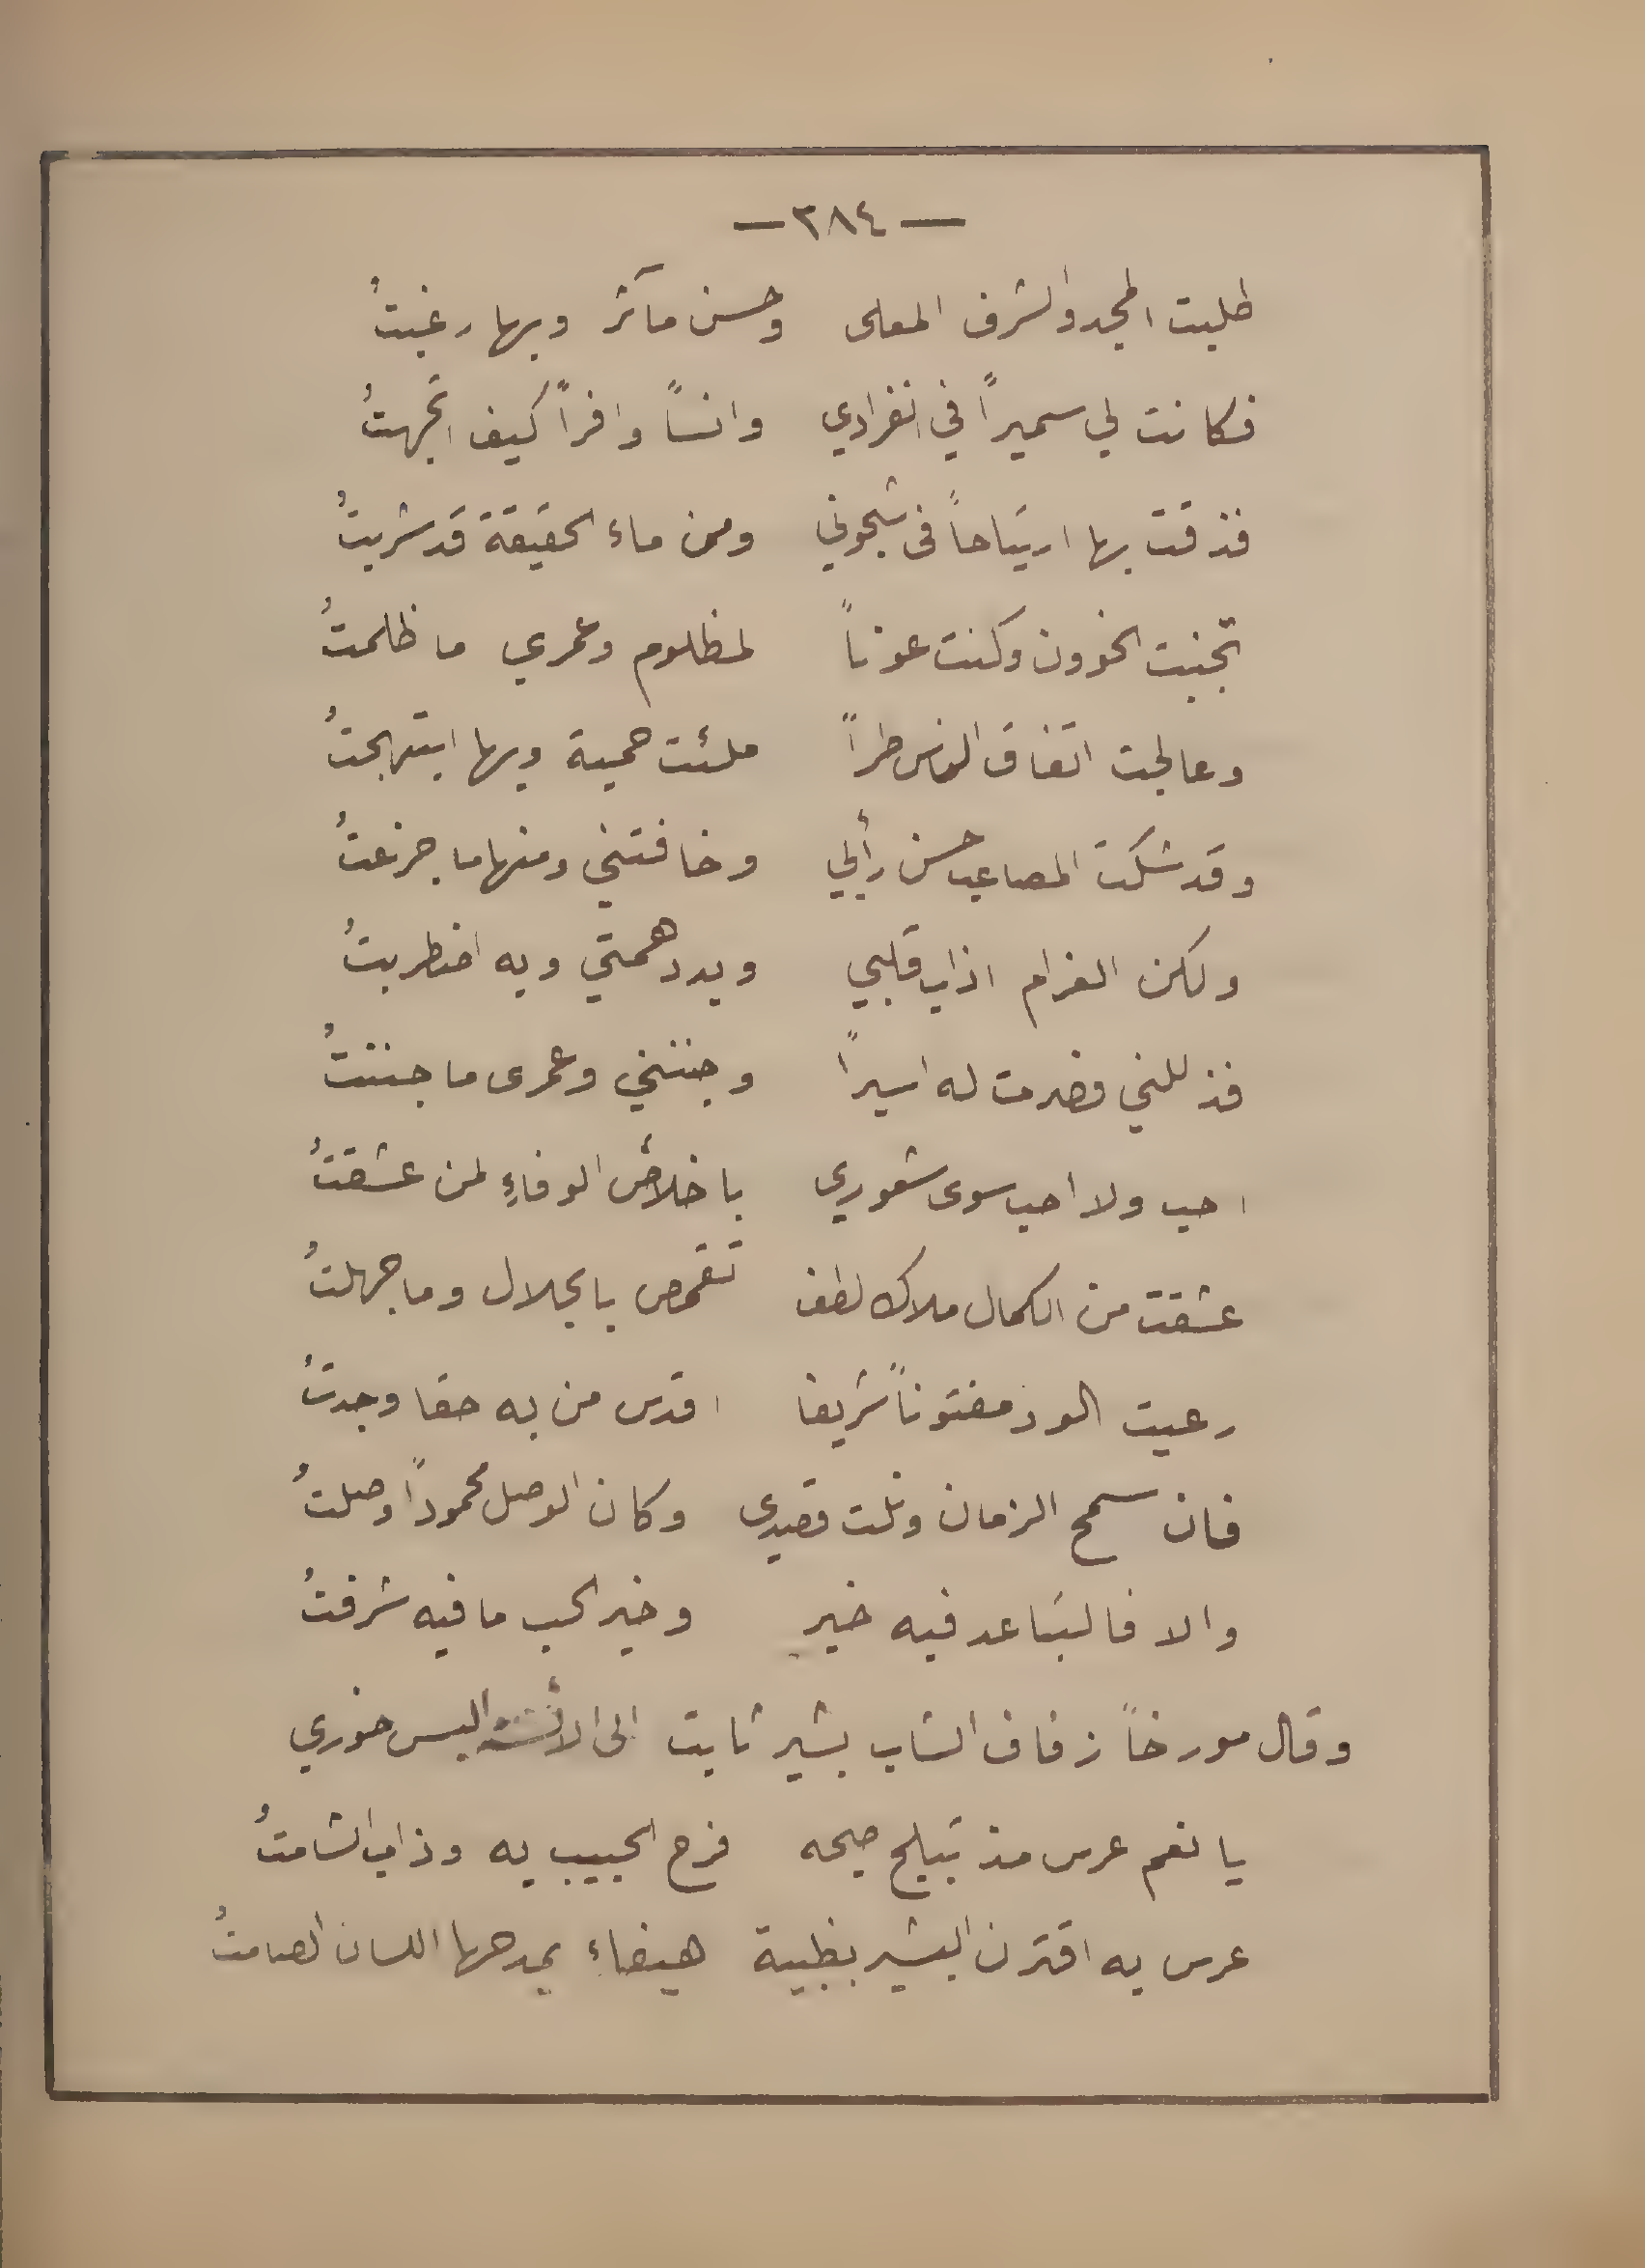 — ٣٨٤ —
طلبت المجد والشرف المعلى وحسن مآثر وبها رغبتُ
فكانت لي سميراً في انفرادي وانساً وافراً كيف اتجهتُ
فذقت بها ارتياحاً في شجوني ومن ماء الحقيقة قد شربتُ
تجنبت الخوون وكنت عوناً لمظلوم وعمري ما ظلمتُ
وعالجت اتفاق الناس طراً ملئت حمية وبها ابتهجتُ
وقد شكت المصاعب حسن رأيي وخافتني ومنها ما جزعتُ
ولكن الغرام اذاب قلبي وبدد همتي وبه اضطربتُ
فذللني فصرت له اسيراً وجننني وعمرى ما جننتُ
احب ولا احب سوى شعوري باخلاص الوفاءِ لمن عشقتُ
عشقت من الكمال ملاك لطف تقمص بالجلال وما جهلتُ
رعيت الود مفتوناً شريفا اقدس من به حقا وجدتُ
فان سمح الزمان ونلت قصدي وكان الوصل محموداً وصلتُ
والا فالتباعد فيه خير وخير الحب ما فيه شرفتُ
وقال مورخاً زفاف الشاب بشير ثابت الى الآنسة اليس خوري
يا نعم عرس مذ تبلج صبحه فرح الحبيب به وذاب الشامتُ
عرس به اقترن البشير بظبية هيفاء يمدحها اللسان الصامتُ